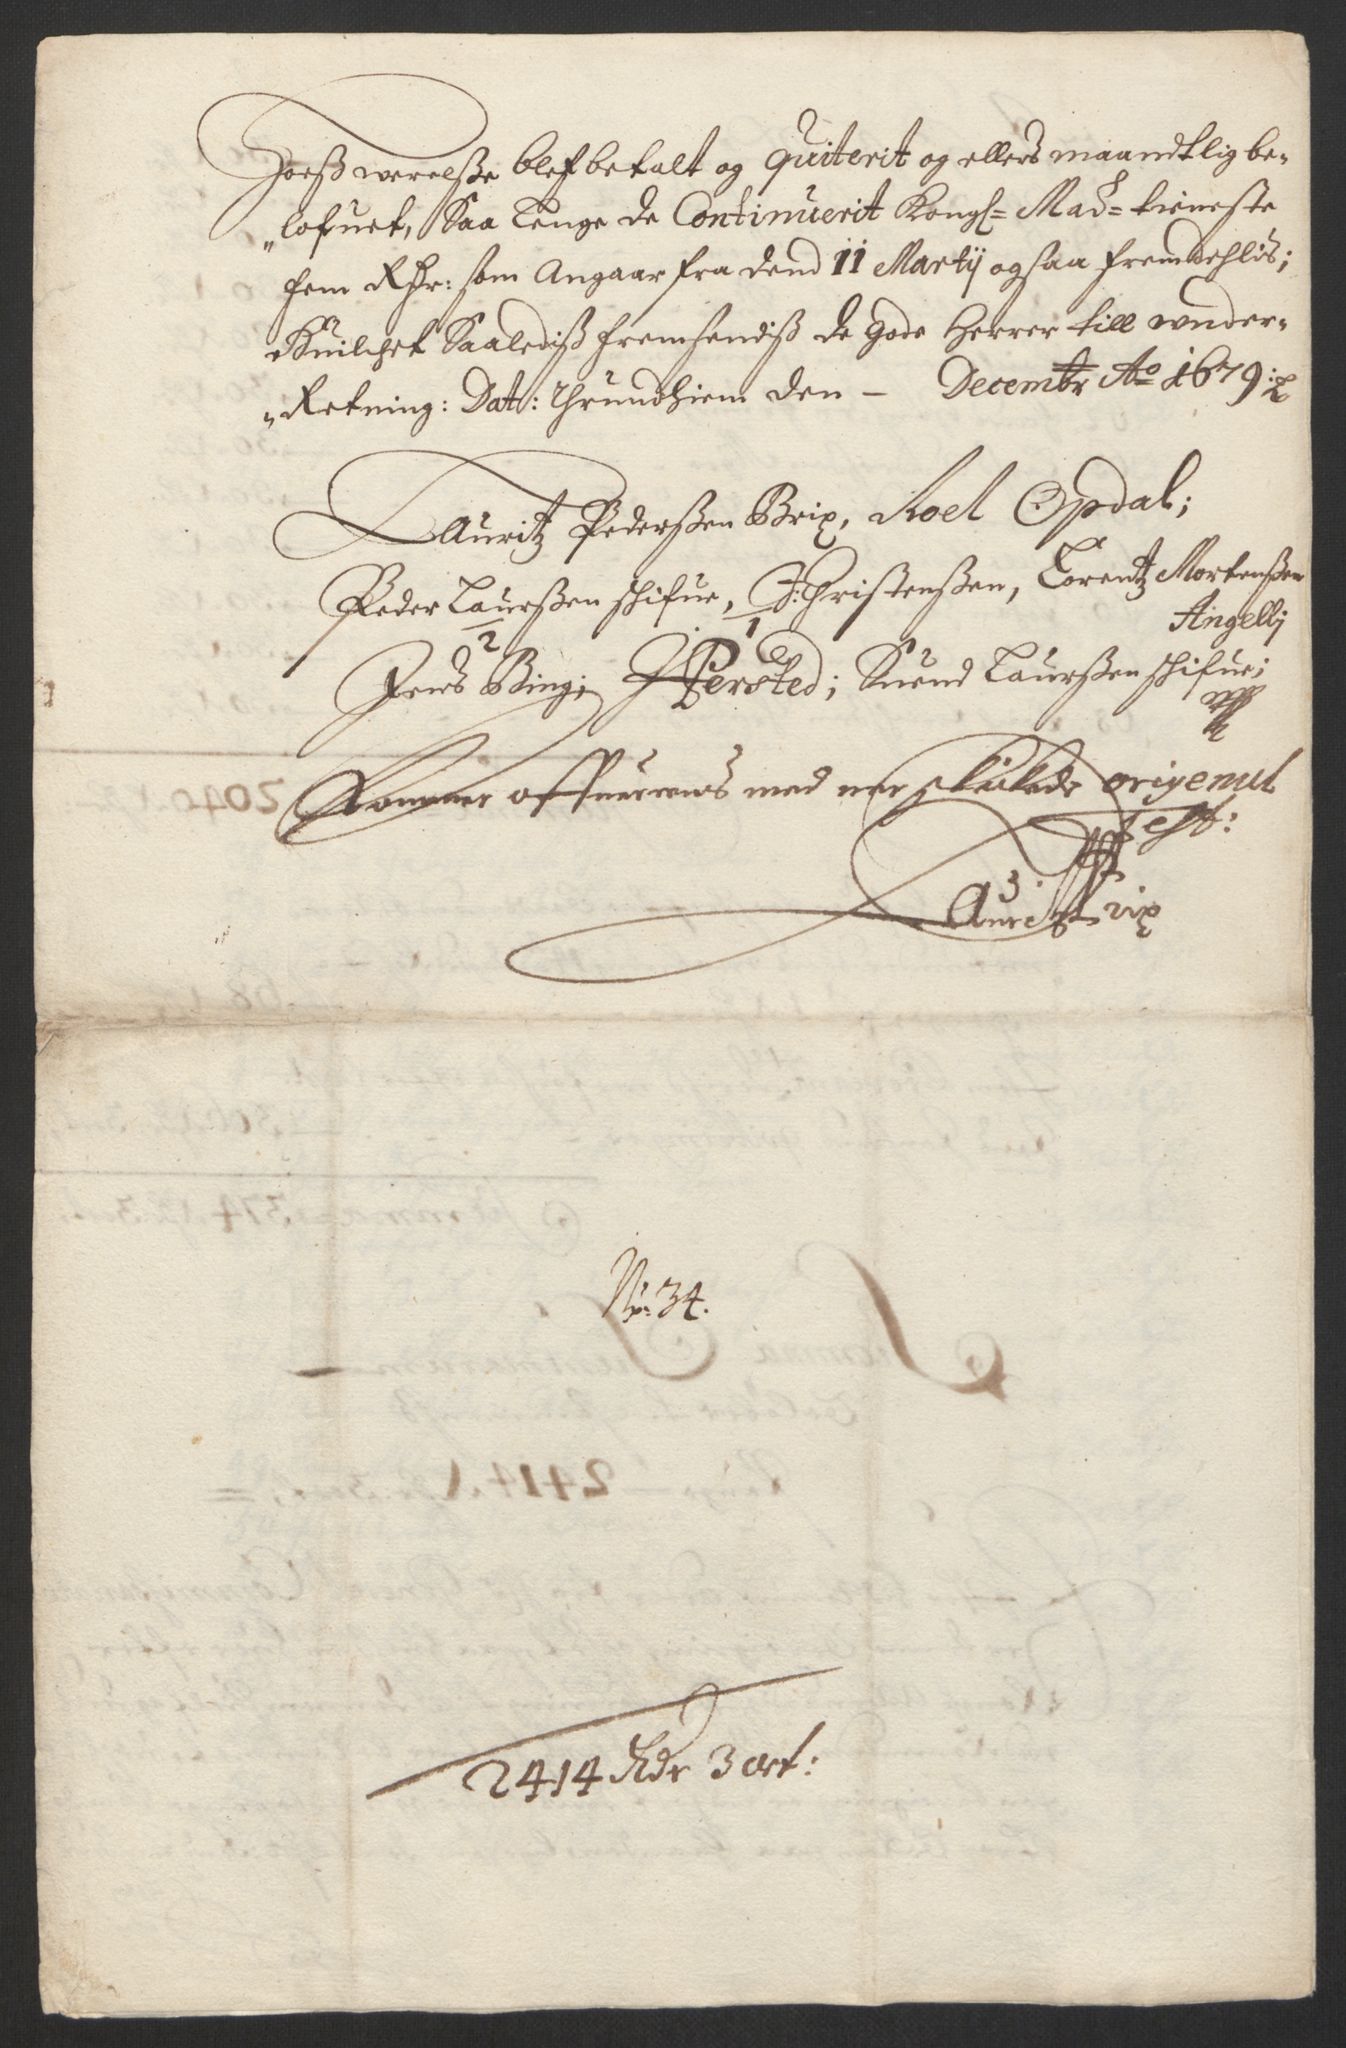 Hoeß werelße blef betalt og Quiterit og ellers maandtlig be-
„lofuet, Saa lenge de Continuerit Kongl= Maÿ= tieneste
fem Rdr: som Angaar fra dend 11 Martij ogsaa fremdehlis;
Huilchet Saalediß fremsendiß de gode Herrer till under-
„Retning: Dat: Thrundhiem den – Decembr Ao 1679:
Lauritz Pederßen Brix, Roel Opdal;
Peder Laurßen Schifue, J: Christenßen, Lorentz Mortenßen
Angell;
Jens Bing; Hersted; Suend Laurßen Schifue;
Kommer offuerrens med origenal
Test:
Lauritz Brix
No: 34.
2414 Rdr 3 ort: